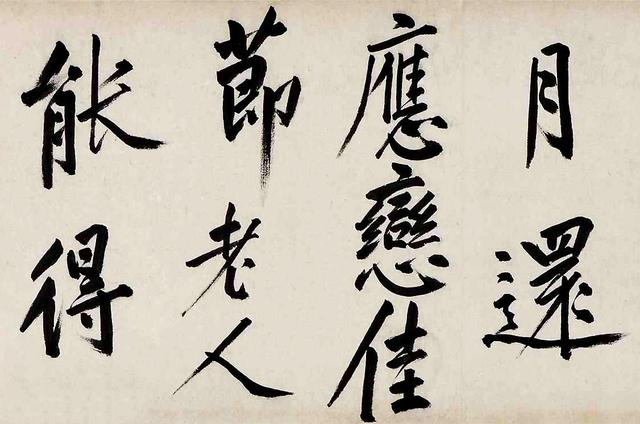 月還
應戀佳
節老人
能得